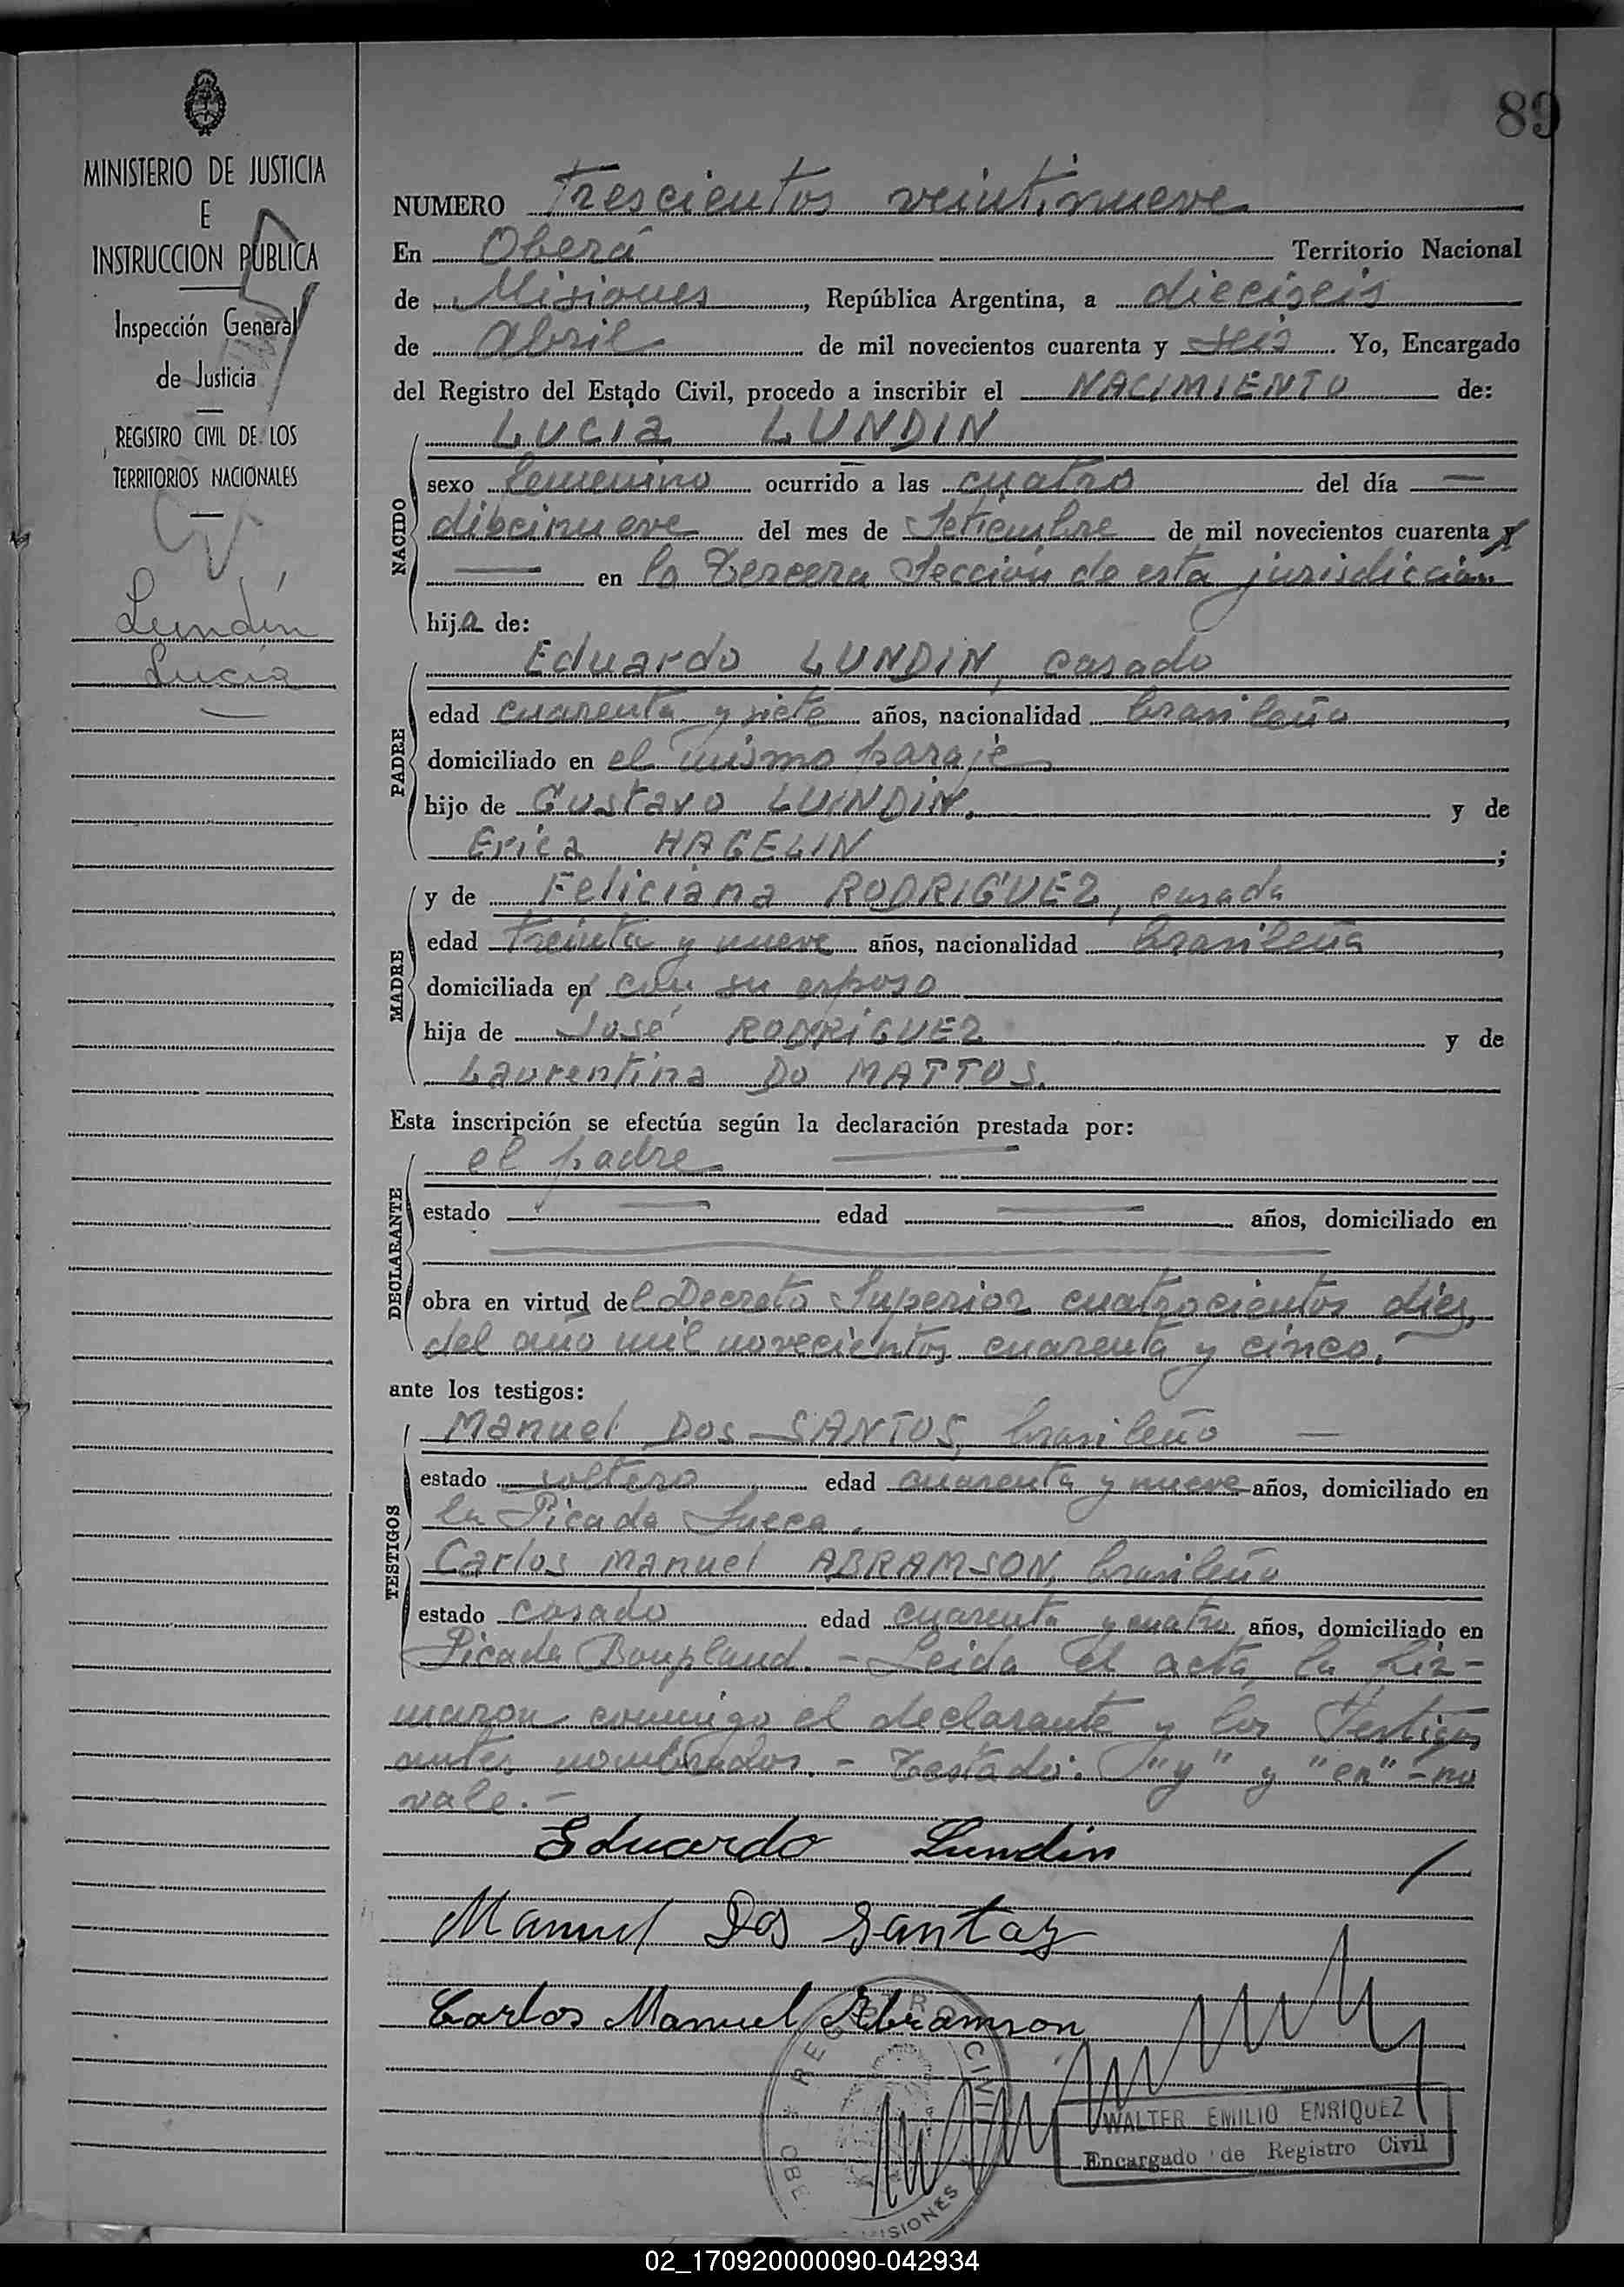 89
MINISTERIO DE JUSTICIA
E
INSTRUCCION PUBLICA
Inspección General
de Justicia
REGISTRO CIVIL DE LOS
TERRITORIOS NACIONALES
Lundín
Lucía
NUMERO Trescientos veintinueve
En Oberá Territorio Nacional
de Misiones, República Argentina, a dieciseis
de Abril de mil novecientos cuarenta y seis. Yo, Encargado
del Registro del Estado Civil, procedo a inscribir el NACIMIENTO de:
Lucia LUNDIN
NACIDO
sexo femenino ocurrido a las cuatro del día —
diecinueve del mes de Setiembre de mil novecientos cuarenta y
— en la Tercera Sección de esta jurisdicción
hija de:
Eduardo LUNDIN, casado
PADRE
edad cuarenta y siete años, nacionalidad brasileño,
domiciliado en el mismo paraje
hijo de Gustavo LUNDIN, y de
Erica HAGELIN ;
y de Feliciana RODRIGUEZ, casada
MADRE
edad treinta y nueve años, nacionalidad brasileña,
domiciliada en con su esposo
hija de José RODRIGUEZ y de
Laurentina DO MATTOS.
Esta inscripción se efectúa según la declaración prestada por:
el padre —
DECLARANTE
estado — edad — años, domiciliado en
—
obra en virtud del Decreto Superior cuatrocientos diez,
del año mil novecientos cuarenta y cinco.
ante los testigos:
Manuel DOS SANTOS, brasileño —
TESTIGOS
estado soltero edad cuarenta y nueve años, domiciliado en
la Picada Sueca.
Carlos Manuel ABRAMSON, brasileño
estado casado edad cuarenta y cuatro años, domiciliado en
Picada Bonpland. - Leida el acta, la fir-
maron conmigo el declarante y los testigos
antes nombrados. - Testado: "y" y "en" - no
vale. -
Eduardo Lundin
Manuel Dos Santos
Carlos Manuel Abramson
REGISTRO CIVIL
OBE
MISIONES
WALTER EMILIO ENRIQUEZ
Encargado de Registro Civil
02_170920000090-042934